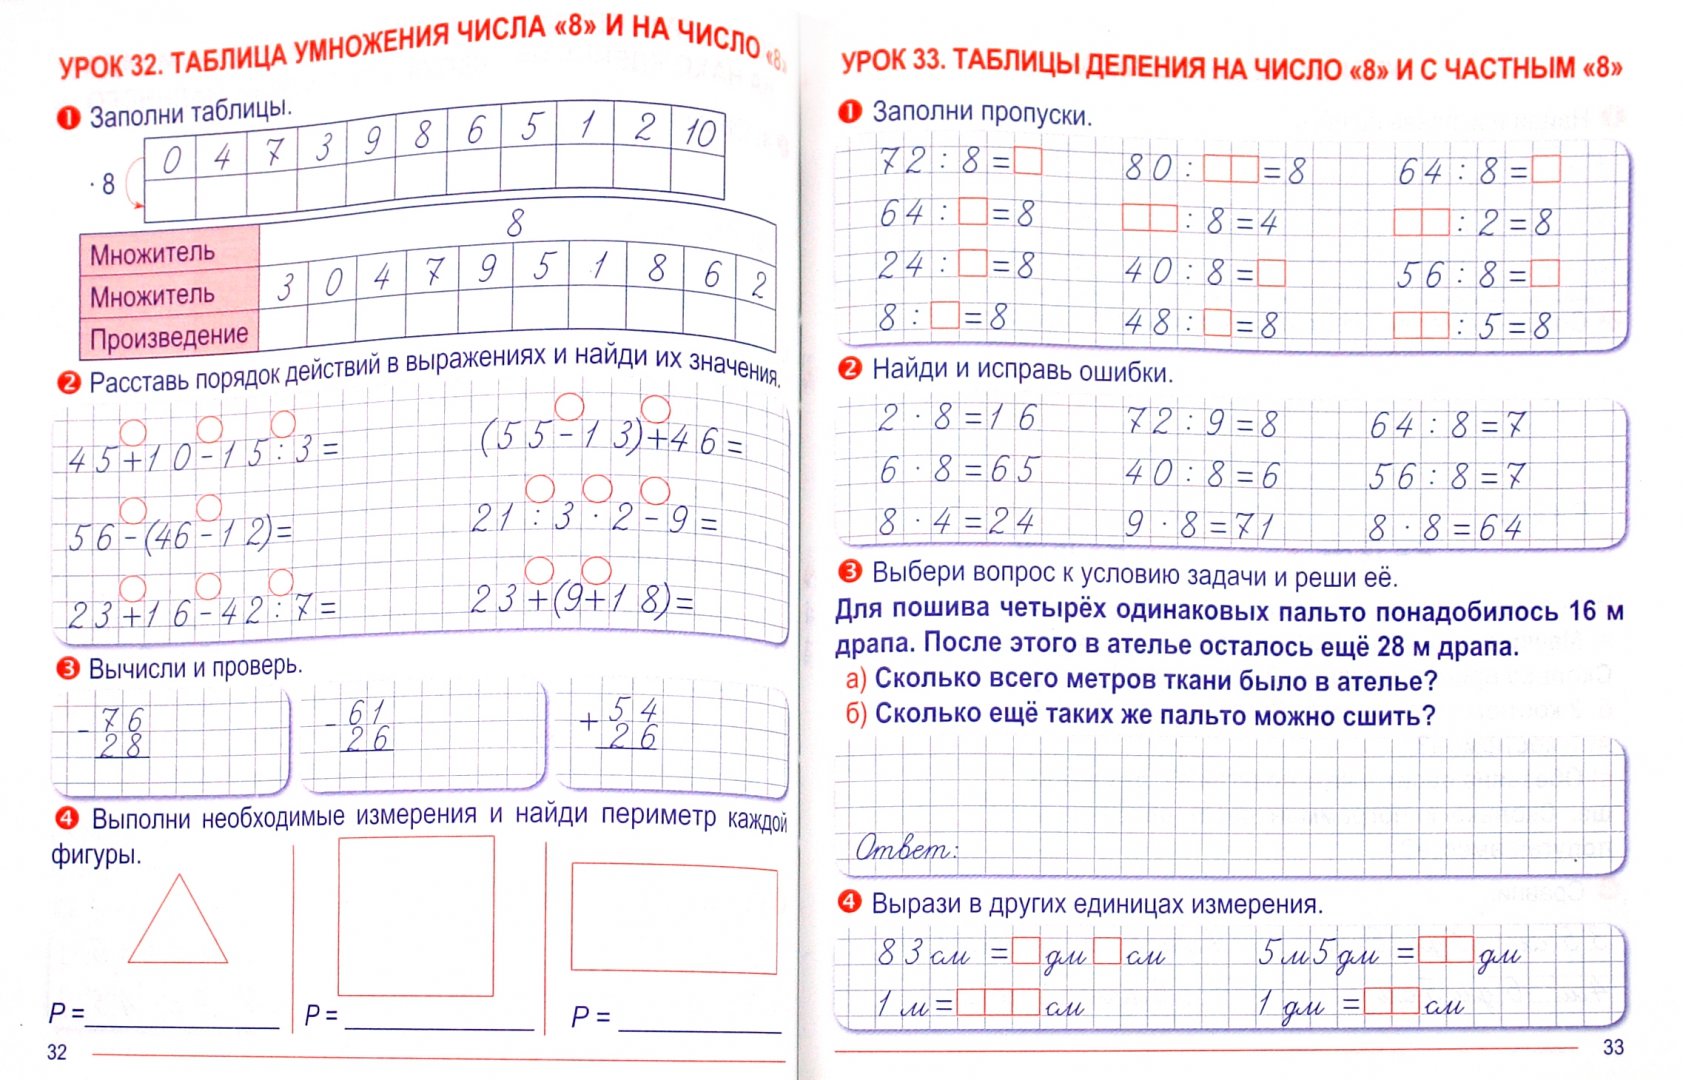 УРОК 32. ТАБЛИЦА УМНОЖЕНИЯ ЧИСЛА «8» И НА ЧИСЛО «8»
1 Заполни таблицы.
0 4 7 3 9 8 6 5 1 2 10
· 8
8
Множитель
Множитель 3 0 4 7 9 5 1 8 6 2
Произведение
2 Расставь порядок действий в выражениях и найди их значения.
45+10-15:3= (55-13)+46=
56-(46-12)= 21:3·2-9=
23+16-42:7= 23+(9+18)=
3 Вычисли и проверь.
- 76 - 61 + 54
28 26 26
4 Выполни необходимые измерения и найди периметр каждой
фигуры.
P = P = P =
32
УРОК 33. ТАБЛИЦЫ ДЕЛЕНИЯ НА ЧИСЛО «8» И С ЧАСТНЫМ «8»
1 Заполни пропуски.
72:8=□ 80:□□=8 64:8=□
64:□=8 □□:8=4 □□:2=8
24:□=8 40:8=□ 56:8=□
8:□=8 48:□=8 □□:5=8
2 Найди и исправь ошибки.
2·8=16 72:9=8 64:8=7
6·8=65 40:8=6 56:8=7
8·4=24 9·8=71 8·8=64
3 Выбери вопрос к условию задачи и реши её.
Для пошива четырёх одинаковых пальто понадобилось 16 м
драпа. После этого в ателье осталось ещё 28 м драпа.
а) Сколько всего метров ткани было в ателье?
б) Сколько ещё таких же пальто можно сшить?
Ответ:
4 Вырази в других единицах измерения.
83 см =□ дм □ см 5 м 5 дм =□□ дм
1 м=□□□ см 1 дм =□□ см
33